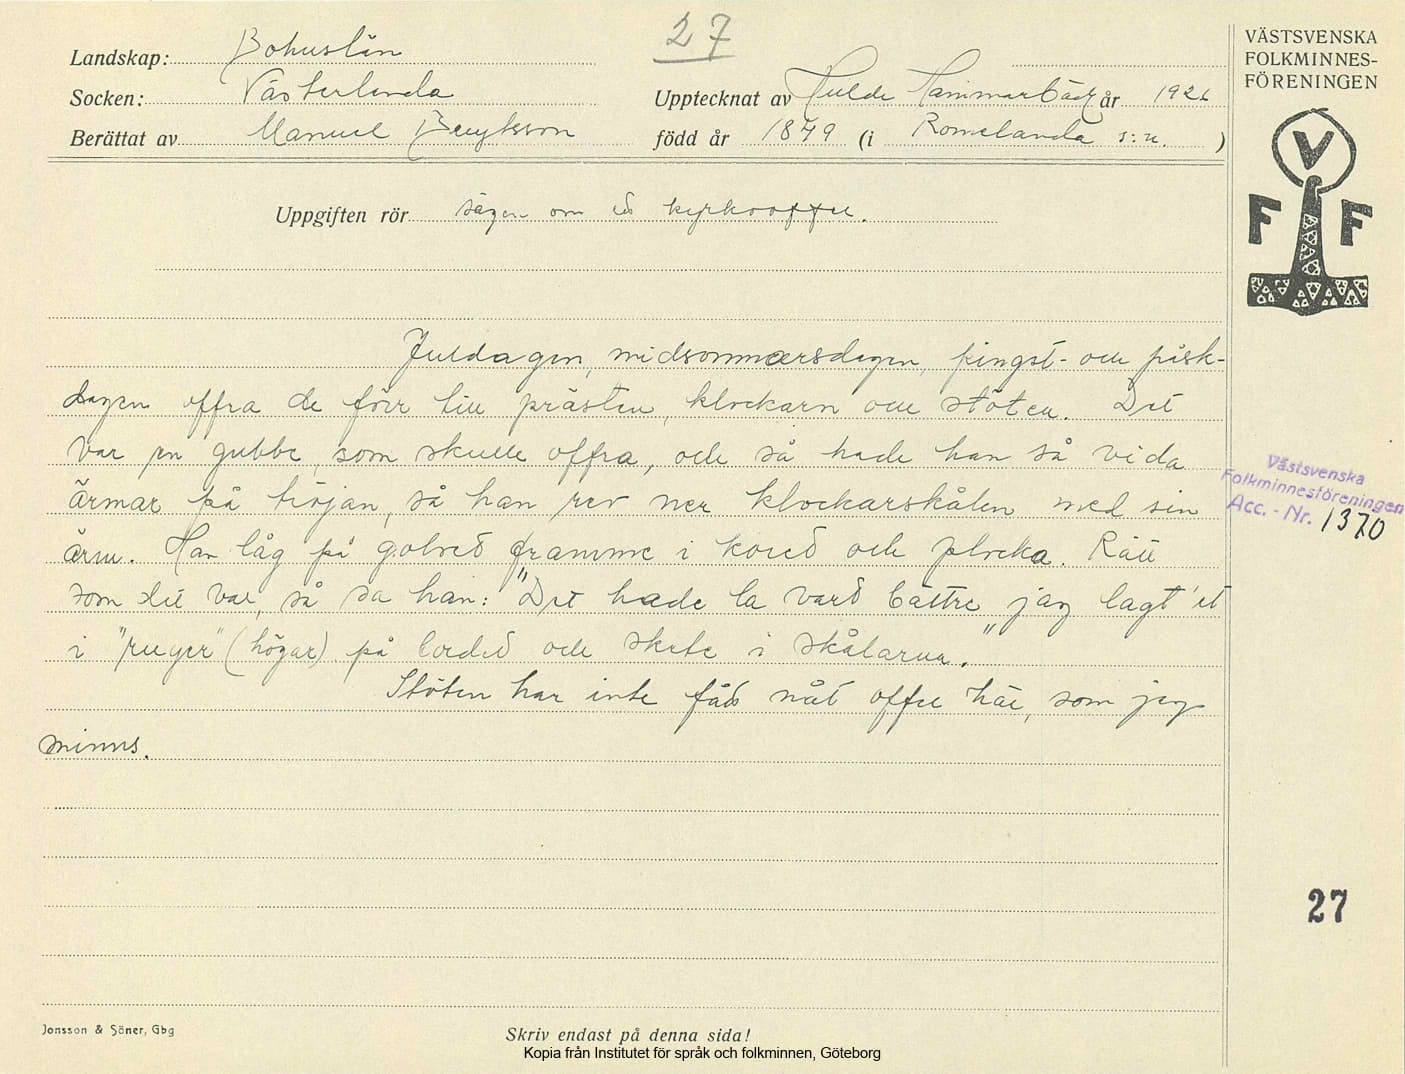 27
VÄSTSVENSKA
FOLKMINNES-
FÖRENINGEN
Landskap: Bohuslän
Socken: Västerlanda
Upptecknat av Hulda Hammarbäck år 1926
Berättat av Manuel Bengtsson född år 1849 (i Romelanda s:n. )
Uppgiften rör sägen om ett kyrkooffer.
V
F F
Juldagen, midsommarsdagen, pingst- och påsk-
dagen offra de förr till prästen, klockarn och stöten. Det
var en gubbe, som skulle offra, och så hade han så vida
ärmar på tröjan, så han rev ner klockarskålen med sin
ärm. Han låg på golvet framme i koret och plocka. Rätt
som det var, så sa han: "Det hade la vart bättre jag lagt 'et
i "ruger" (högar) på bordet och skete i skålarna."
Stöten har inte fått nåt offer här, som jag
minns.
Västsvenska
Folkminnesföreningen
Acc. - Nr. 1370
27
Jonsson & Söner, Gbg
Skriv endast på denna sida!
Kopia från Institutet för språk och folkminnen, Göteborg